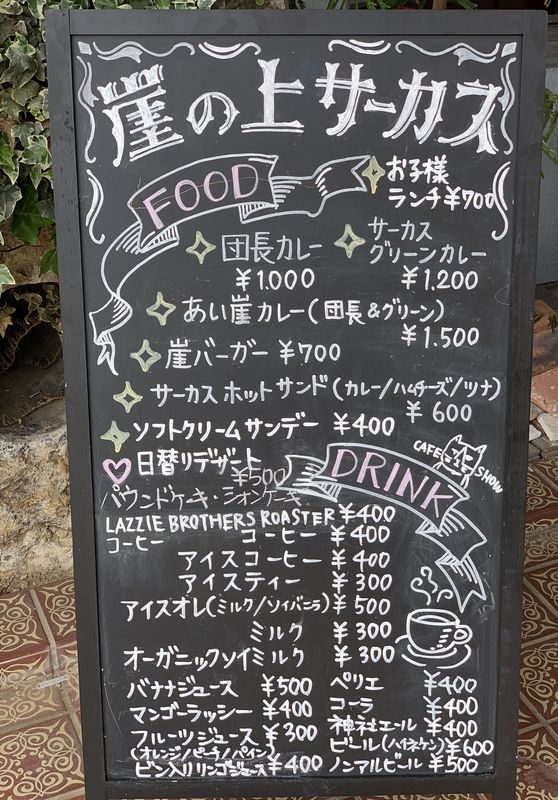 崖の上サーカス
FOOD
お子様
ランチ ¥700
団長カレー
¥1.000
サーカス
グリーンカレー
¥1.200
あい崖カレー(団長&グリーン)
¥1.500
崖バーガー ¥700
サーカスホットサンド(カレー/ハムチーズ/ツナ)
¥600
ソフトクリームサンデー ¥400
日替リデザート
¥500
パウンドケーキ・シフォンケーキ
DRINK
CAFE SHOW
LAZZIE BROTHERS ROASTER ¥400
コーヒー
コーヒー ¥400
アイスコーヒー ¥400
アイスティー ¥300
アイスオレ(ミルク/ソイバニラ) ¥500
ミルク ¥300
オーガニックソイミルク ¥300
バナナジュース ¥500
マンゴーラッシー ¥400
フルーツジュース ¥300
(オレンジ/ピーチ/パイン)
ビン入リリンゴジュース ¥400
ペリエ ¥400
コーラ ¥400
神社エール ¥400
ビール(ハイネケン) ¥600
ノンアルビール ¥500